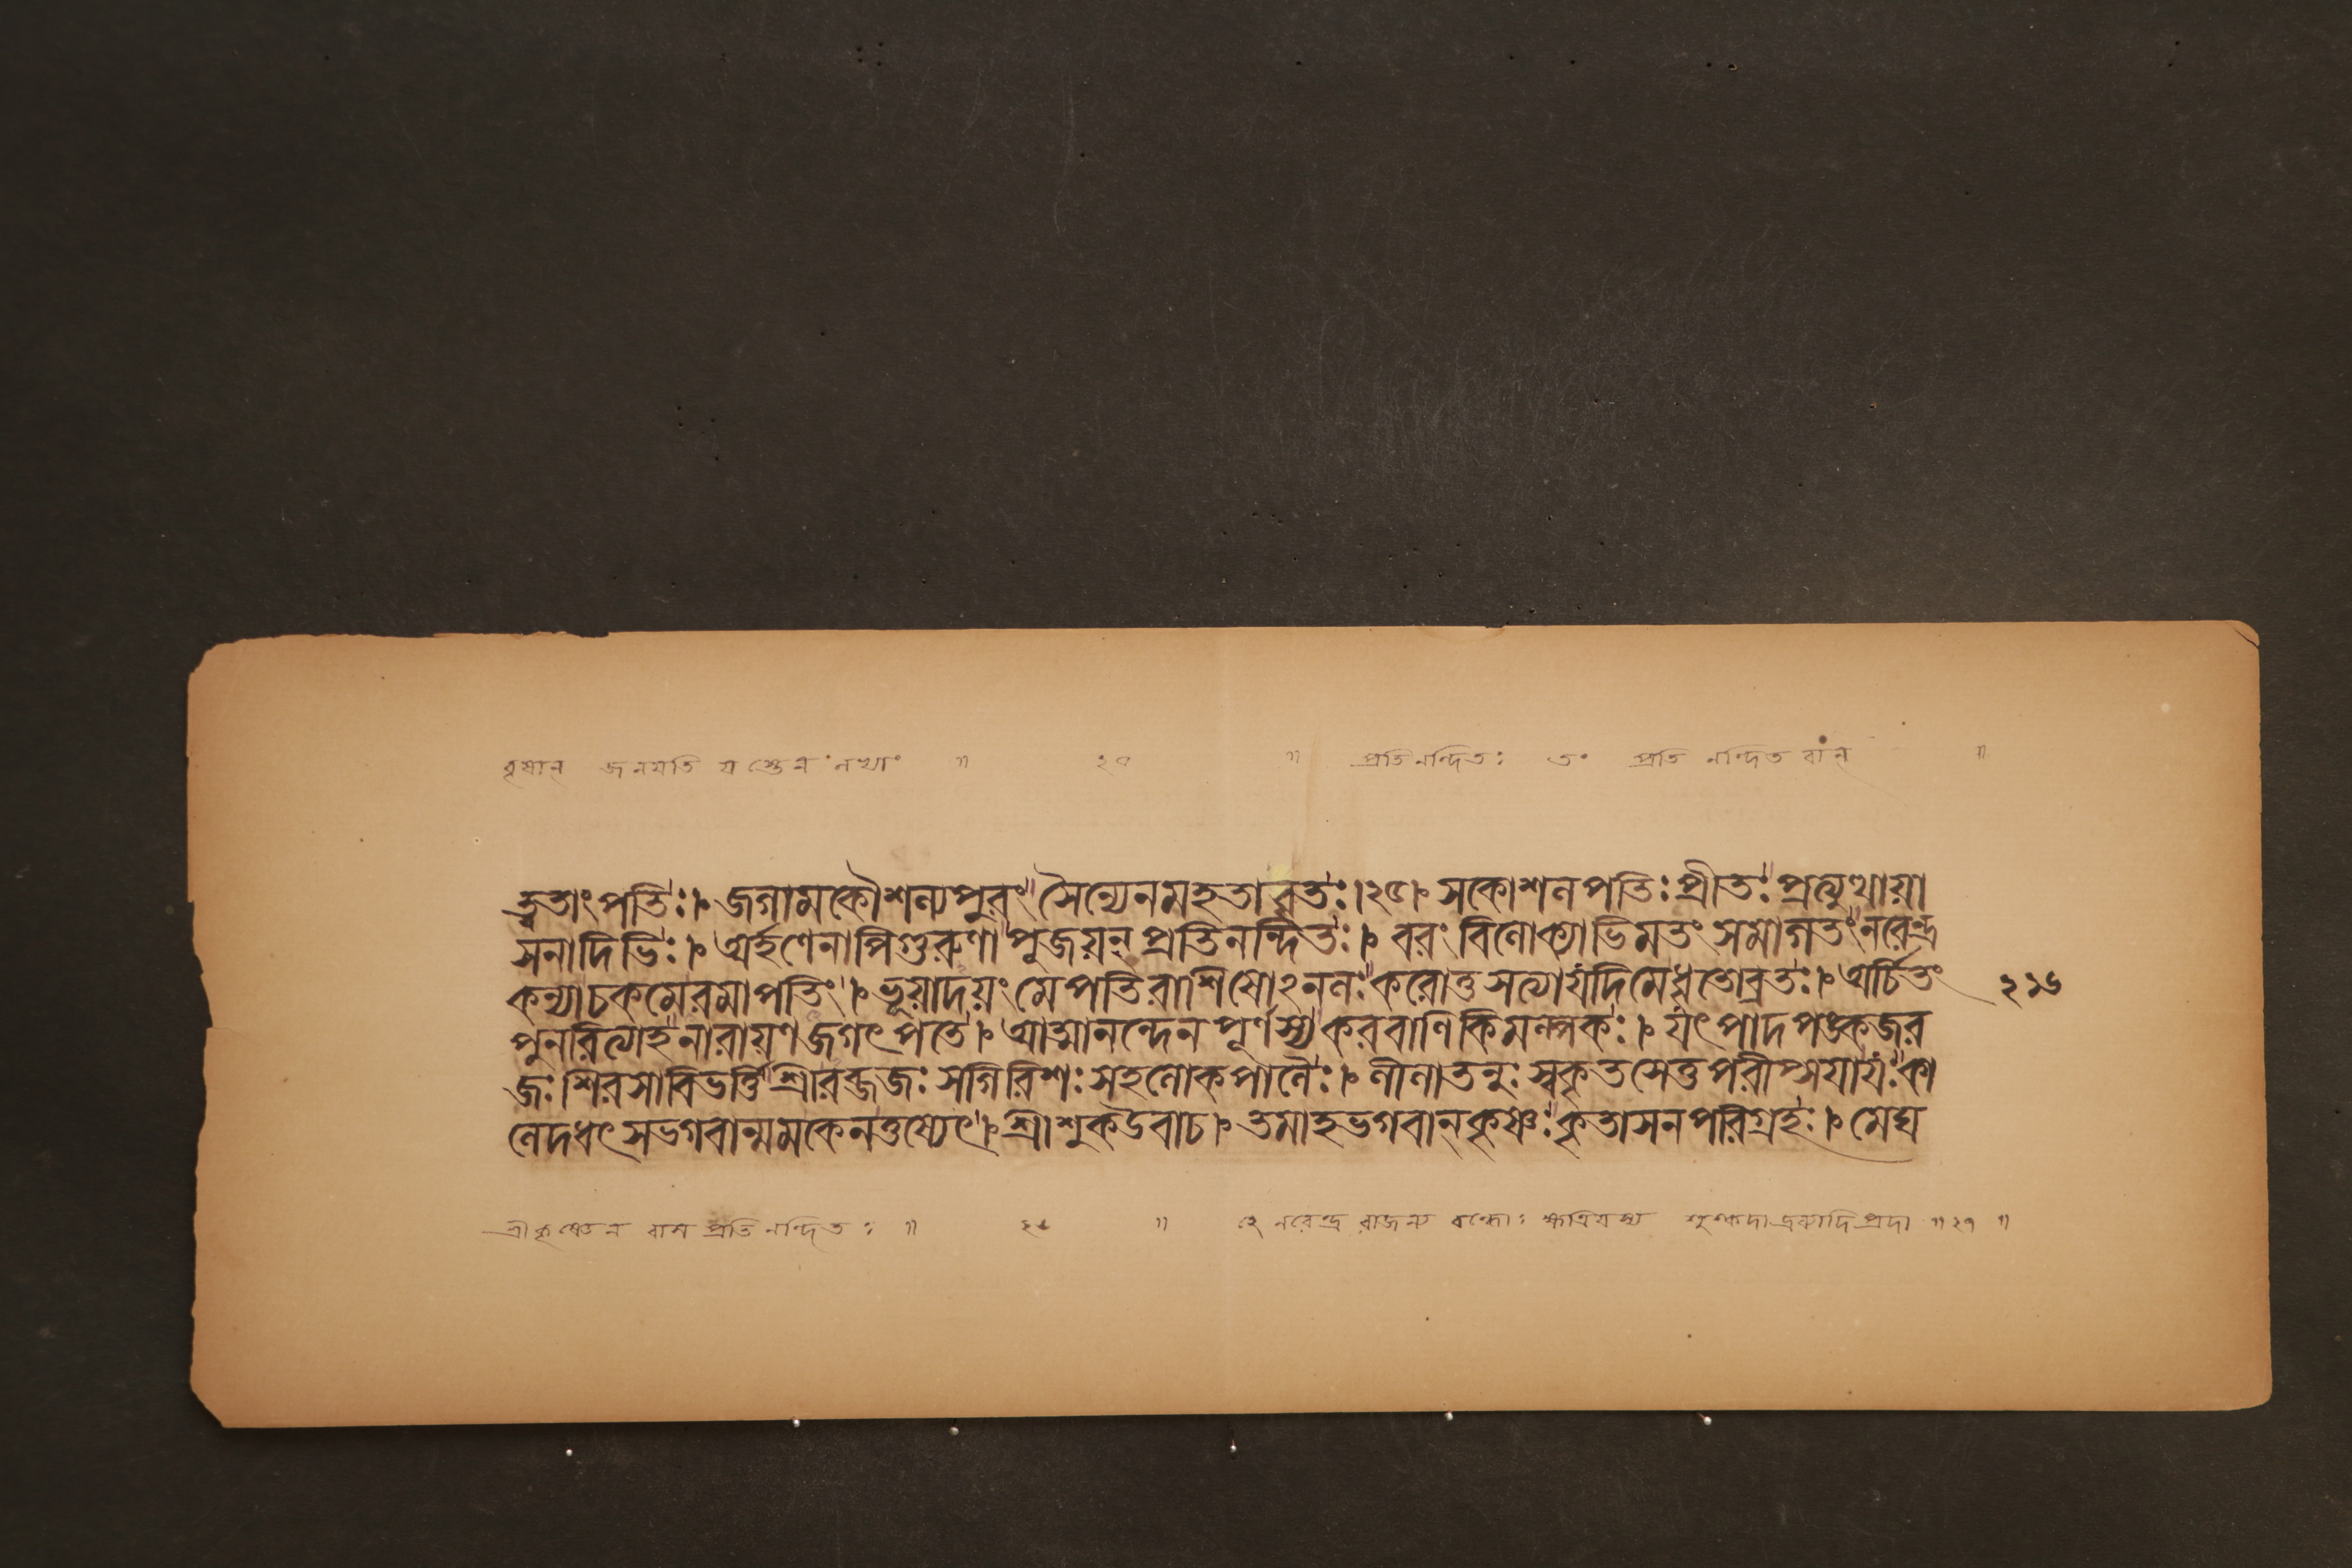 বৃষান্ জনযতি যস্তেন নখাং ॥ ২৭ ॥ প্রতিনন্দিতঃ তং প্রতি নন্দিত বান্ ॥
ত্বতাংপতিঃ।৮ জগামকৌশল্যপুরং সৈন্যেনমহতাবৃতঃ।২৫।৮ সকোশলপতিঃপ্রীতঃ প্রত্যুত্থায়া
সনাদিভিঃ।৮ অর্হণেনাপিগুরুণা পূজয়ন্ প্রতিনন্দিতঃ।৮ বরং বিলোক্যাভিমতং সমাগতং নরেন্দ্র
কন্যাচকমেরমাপতিং।৮ ভূয়াদয়ং মেপতিরাশিষোঽনলঃ করোতুসত্যাযদিমেধৃতোব্রতঃ।৮ অর্চিতং
২১৬
পুনরিত্যাহ নারায়ণজগৎপতে।৮ আত্মানন্দেনপূর্ণস্য করবাণিকিমল্পকঃ।৮ যৎপাদপঙ্কজর
জঃ শিরসাবিভর্ত্তি শ্রীরব্জজঃ সগিরিশঃ সহলোকপালৈঃ।৮ লীলাতনুঃ স্বকৃতসেতুপরীপ্সযাযঃ কা
লেদধৎ সভগবান্মমকেনতুষ্যেৎ।৮ শ্রীশুকউবাচ।৮ তমাহভগবান্কৃষ্ণঃ কৃতাসনপরিগ্রহঃ।৮ মেঘ
শ্রীকৃষ্ণেন প্রতি নন্দিতঃ ॥ ২৮ ॥ হে নরেন্দ্র রাজন্য বন্ধোঃ ক্ষত্রিযস্য ॥২৭॥